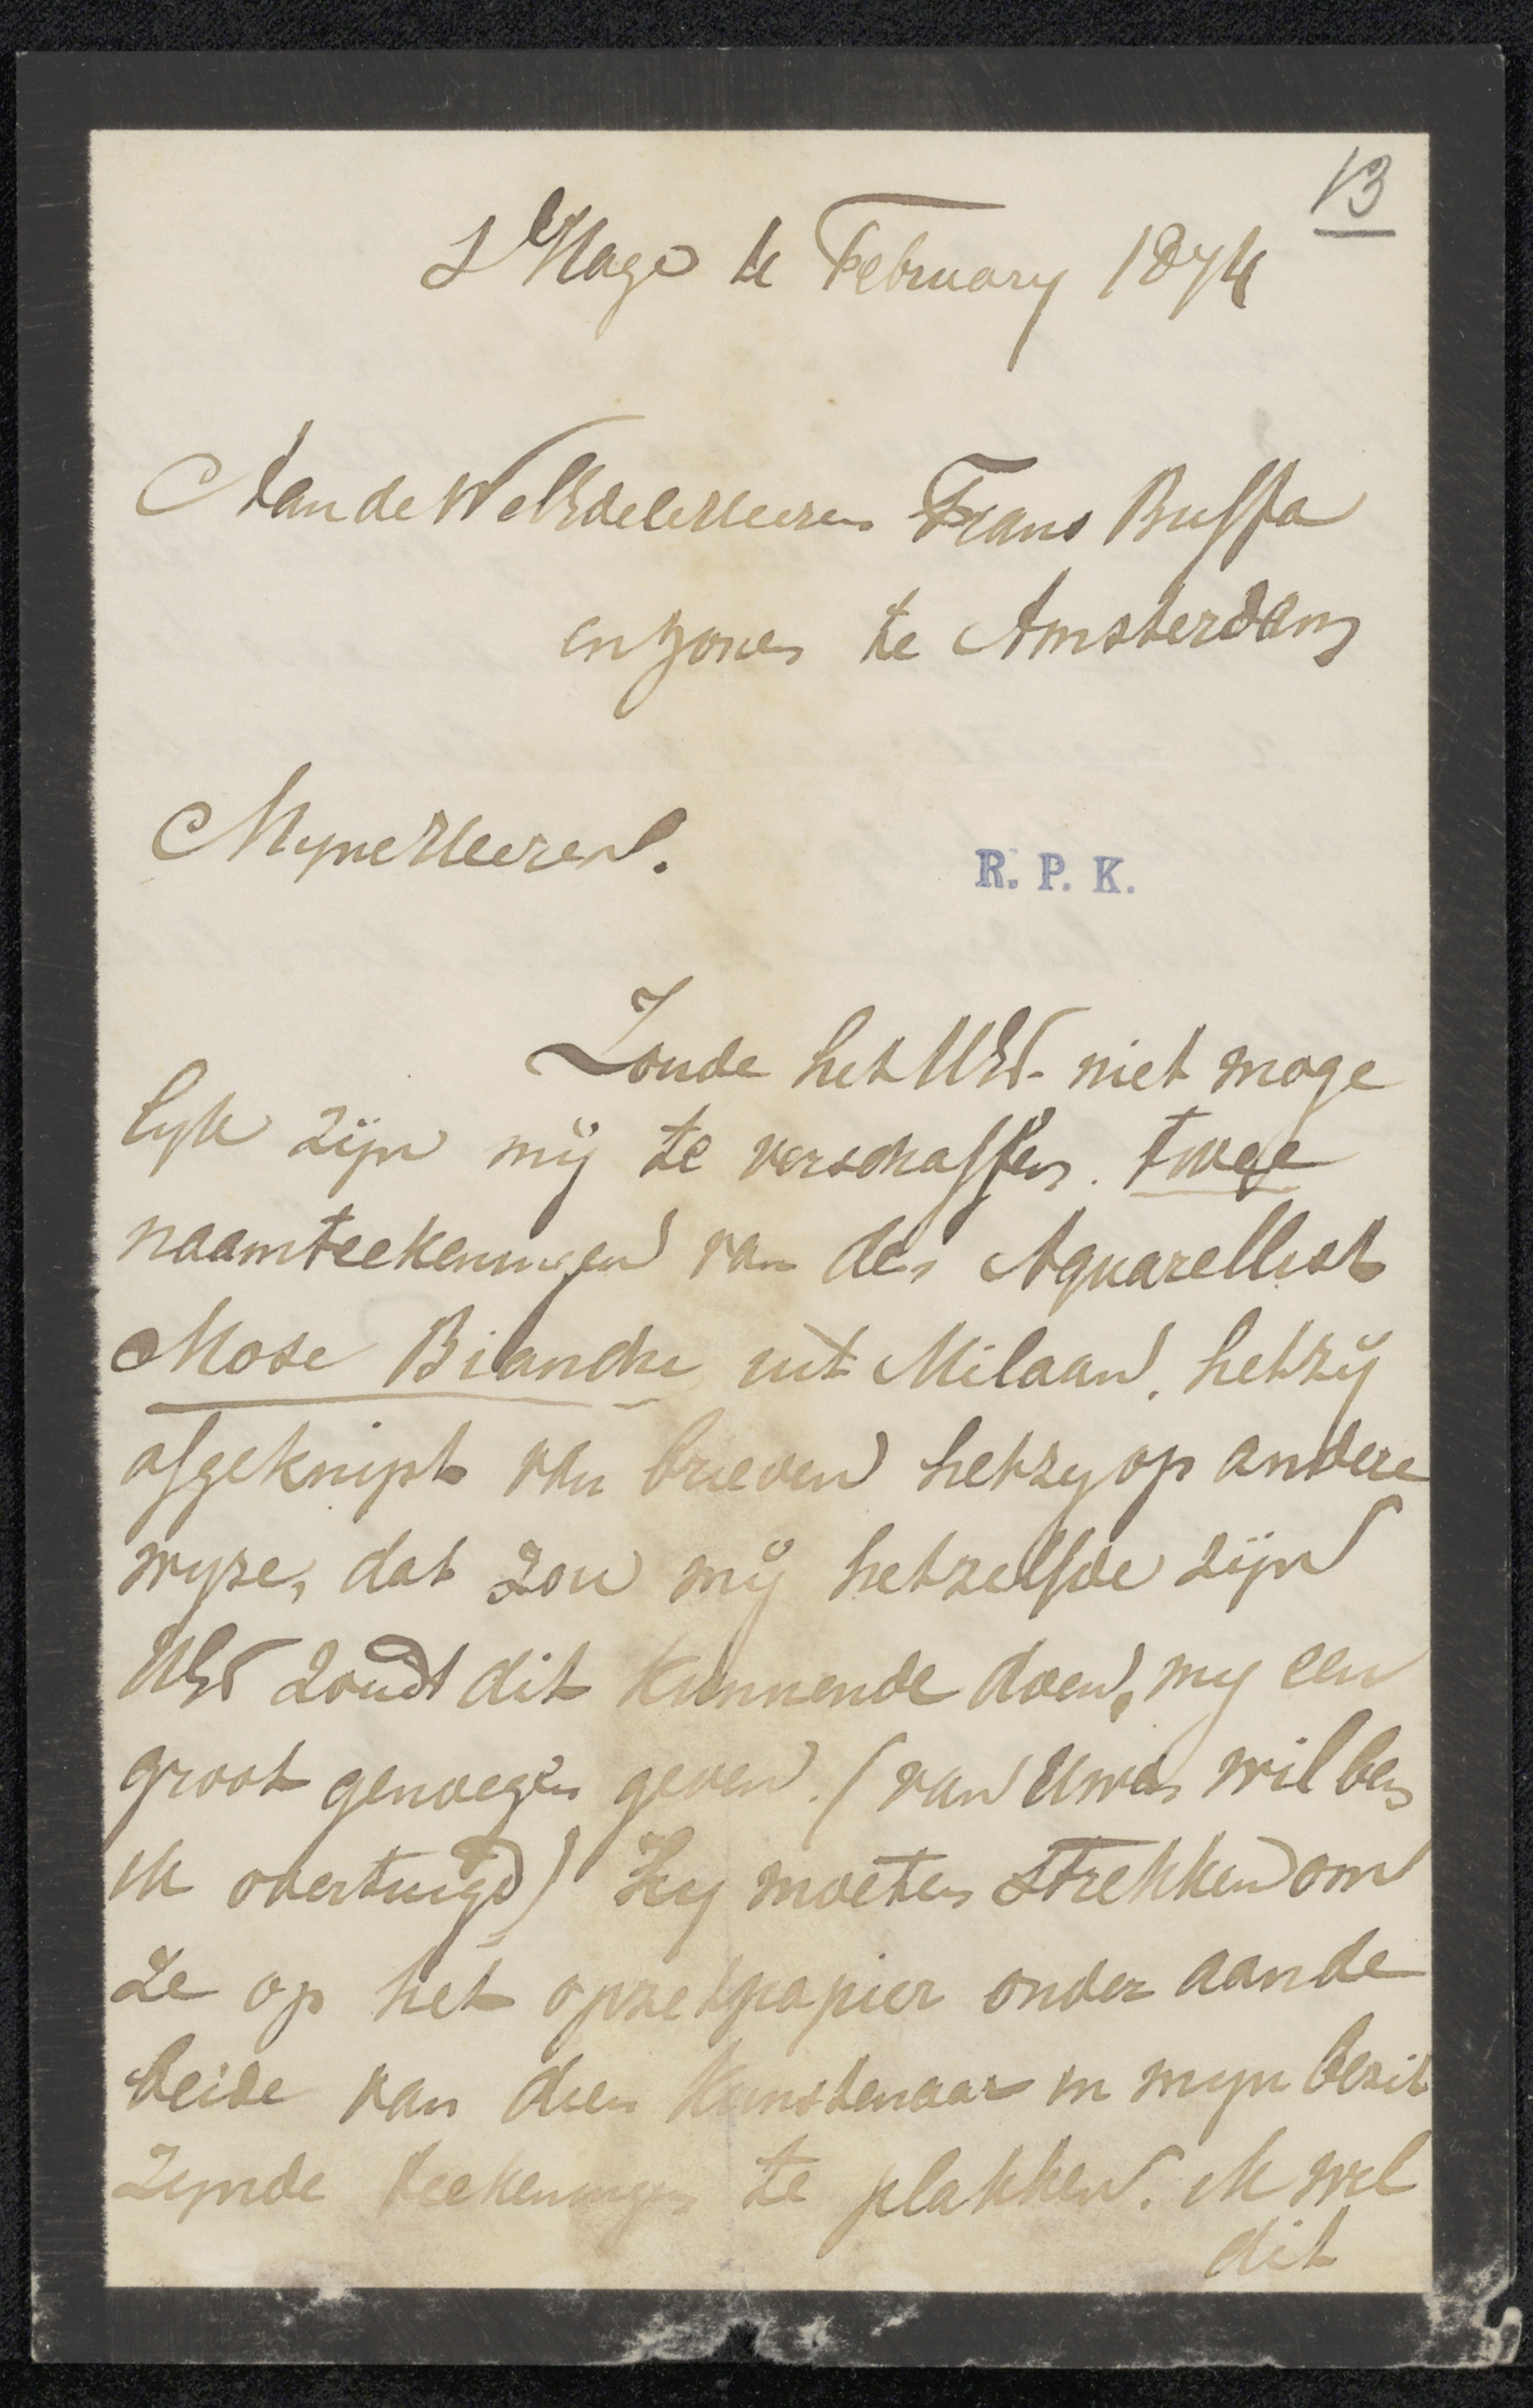 13
S'Hage de February 1874
Aan de WelEdele Heeren Frans Buffa
en zonen te Amsterdam
Myne Heeren.
R. P. K.
Zoude het UEd. niet moge
lyk zijn mij te verschaffen. twee
naamteekeningen van den Aquarellist
Mose Bianchi uit Milaan, hetzij
afgeknipt van brieven hetzy op andere
wyze, dat zou mij hetzelfde zijn
UEd zoudt dit kunnende doen, my een
groot genoegen geven. (van Uwen wil ben
ik overtuigd) Zy moeten strekken om
ze op het opzetpapier onder aan de
beide van dien Kunstenaar in myn bezit
zynde teekeningen te plakken. ik wil
dit